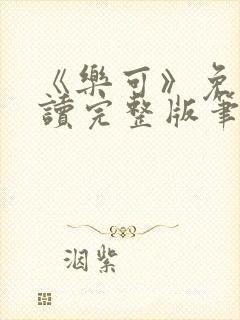 《樂可》免
讀完整版筆
洇紫